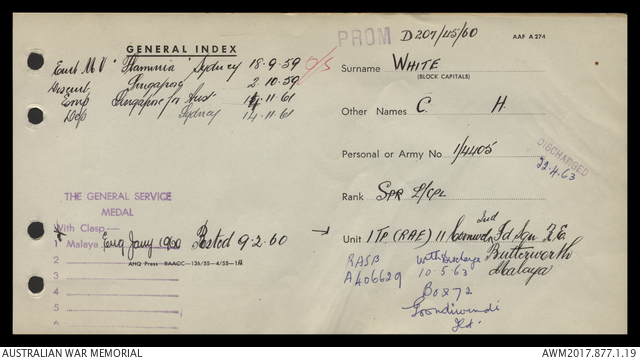 GENERAL INDEX
Emb M V "Flaminia" Sydney 18-9-59 O/S
Disemb Singapore 2-10-59
Emp Singapore for Aust 14-11-61
Dep Sydney 14-11-61
THE GENERAL SERVICE
MEDAL
With Clasp
1 Malaya Enq Jany 1960 Posted 9-2-60
2
3
4
5
AHQ Press BAAOC—126/55—4/55—1M
PROM D207/45/60 AAF A274
Surname WHITE
(BLOCK CAPITALS)
Other Names C. H.
Personal or Army No 1/4405
DISCHARGED
22.4.63
Rank SPR L/CPL
2nd
Unit 1 TP (RAE) 11 Fd Sqn R.E.
Butterworth
Malaya
RASB
A406629
with discharge
10-5-63
Box 72
Goondiwindi
Qld.
AUSTRALIAN WAR MEMORIAL
AWM2017.877.1.19